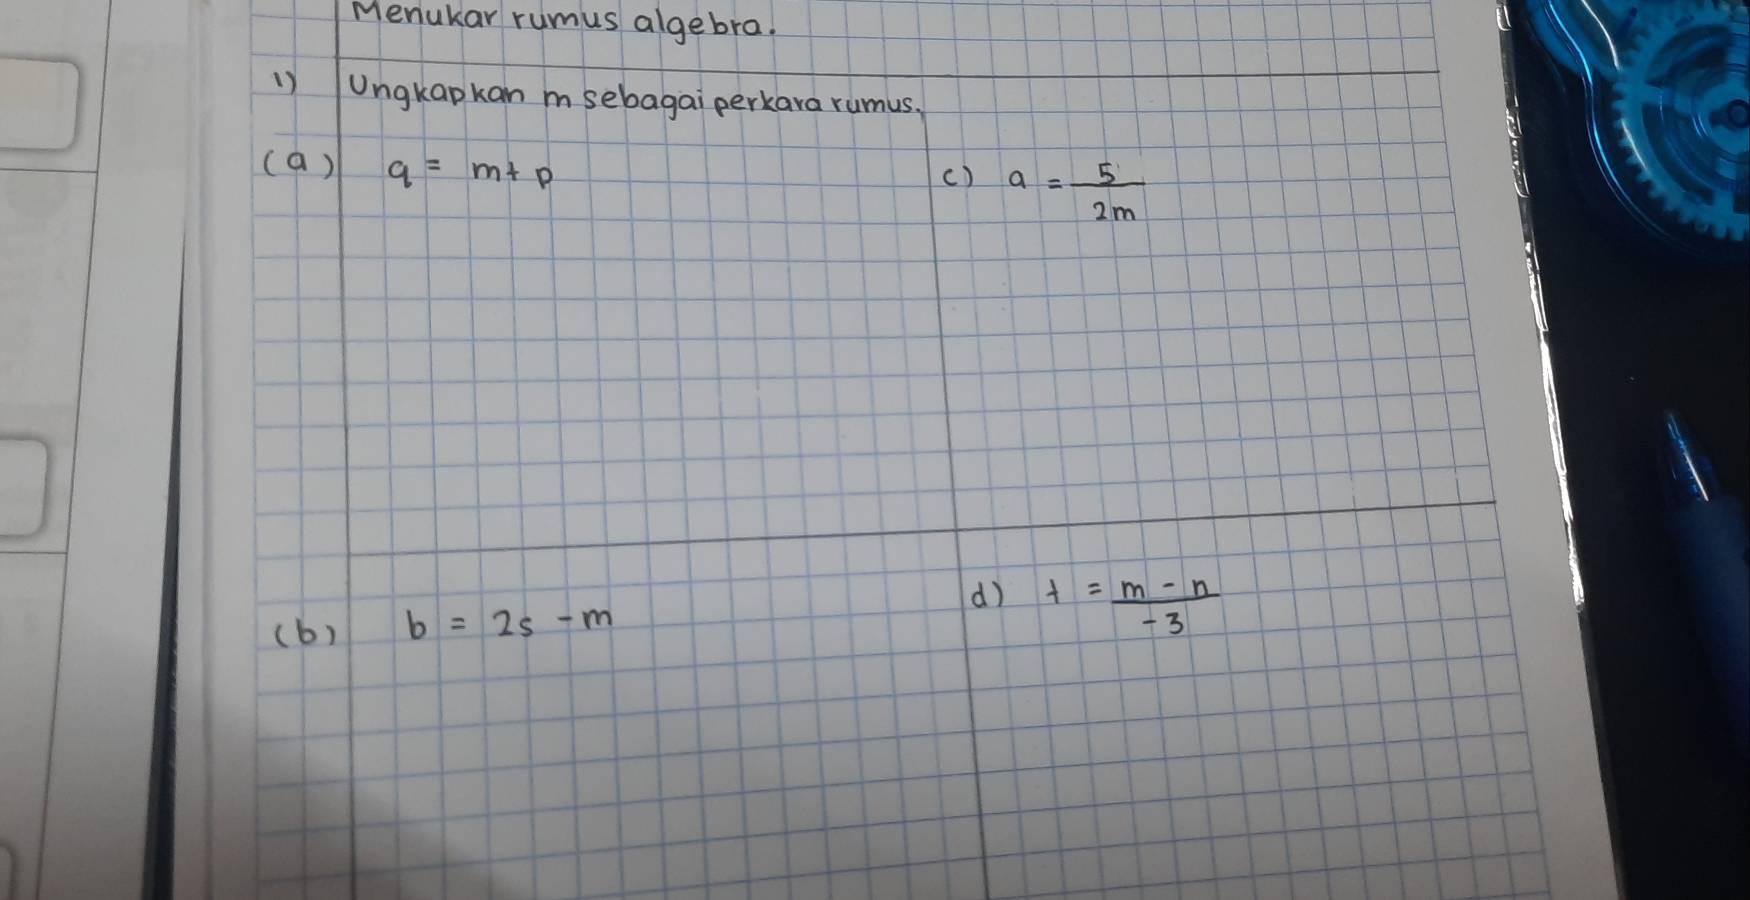 Menukar rumus algebra.
1) Ungkapkan m sebagai perkara rumus.
(a) q = m + p
c) a = 5/2m
(b) b = 2s - m
d) t = m - n/-3